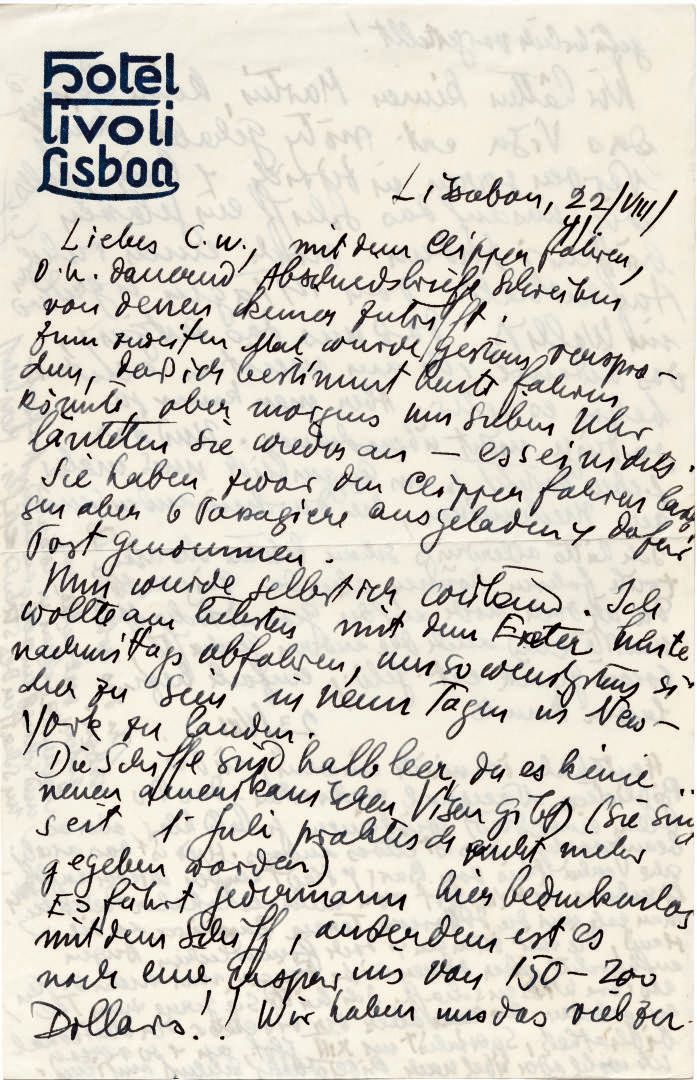 hotel
tivoli
Lisboa
Lissabon, 22/VIII/
Liebes C.W., mit dem Clipper fahren,
d.h. dauernd Abschiedsbriefe schreiben
von denen keiner zutrifft.
Zum zweiten Mal wurde gestern verspro-
chen, daß ich bestimmt heute fahren
könnte, aber morgens um sieben Uhr
läuteten sie wieder an – es sei nichts.
Sie haben zwar den Clipper fahren las
sen aber 6 Passagiere ausgeladen & dafür
Post genommen.
Nun wurde selbst ich wütend. Ich
wollte am liebsten mit dem Exeter heute
nachmittags abfahren, um so wenigstens si-
cher zu sein in neun Tagen in New-
York zu landen.
Die Schiffe sind halbleer, da es keine
neuen amerikanischen Visen gibt) (sie sind
seit 1 Juli praktisch nicht mehr
gegeben worden)
Es fährt jedermann hier bedenkenlos
mit dem Schiff, außerdem ist es
noch eine Ersparnis von 150–200
Dollars!! Wir haben uns das viel zu